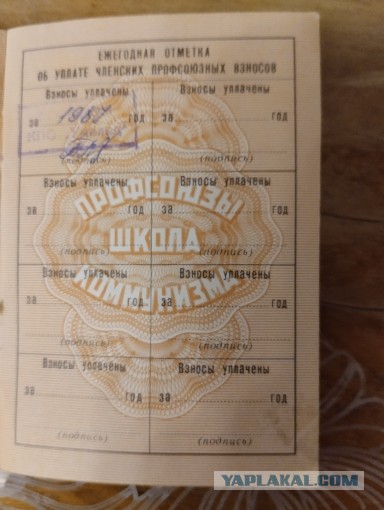 ЕЖЕГОДНАЯ ОТМЕТКА
ОБ УПЛАТЕ ЧЛЕНСКИХ ПРОФСОЮЗНЫХ ВЗНОСОВ
Взносы уплачены Взносы уплачены
за 1987 год за год
(подпись) (подпись)
Взносы уплачены Взносы уплачены
за год за год
(подпись) (подпись)
ПРОФСОЮЗЫ
ШКОЛА
КОММУНИЗМА
Взносы уплачены Взносы уплачены
за год за год
(подпись) (подпись)
Взносы уплачены Взносы уплачены
за год за год
(подпись) (подпись)
YAPLAKAL.COM